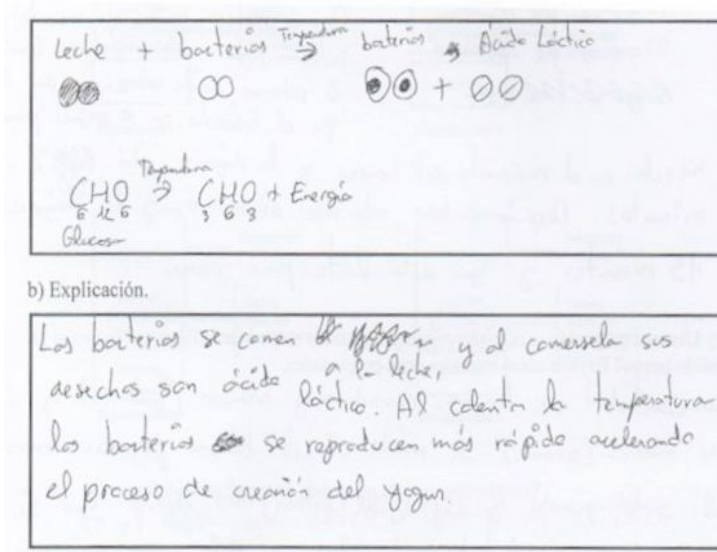 Leche + bacterias Temperatura → bacterias → Ácido Láctico
+
Temperatura
C6H12O6 → C3H6O3 + Energía
Glucosa
b) Explicación.
Las bacterias se comen a la leche, y al comersela sus
desechos son ácido láctico. Al calentar la temperatura
las bacterias se reproducen más rápido acelerando
el proceso de creación del yogur.